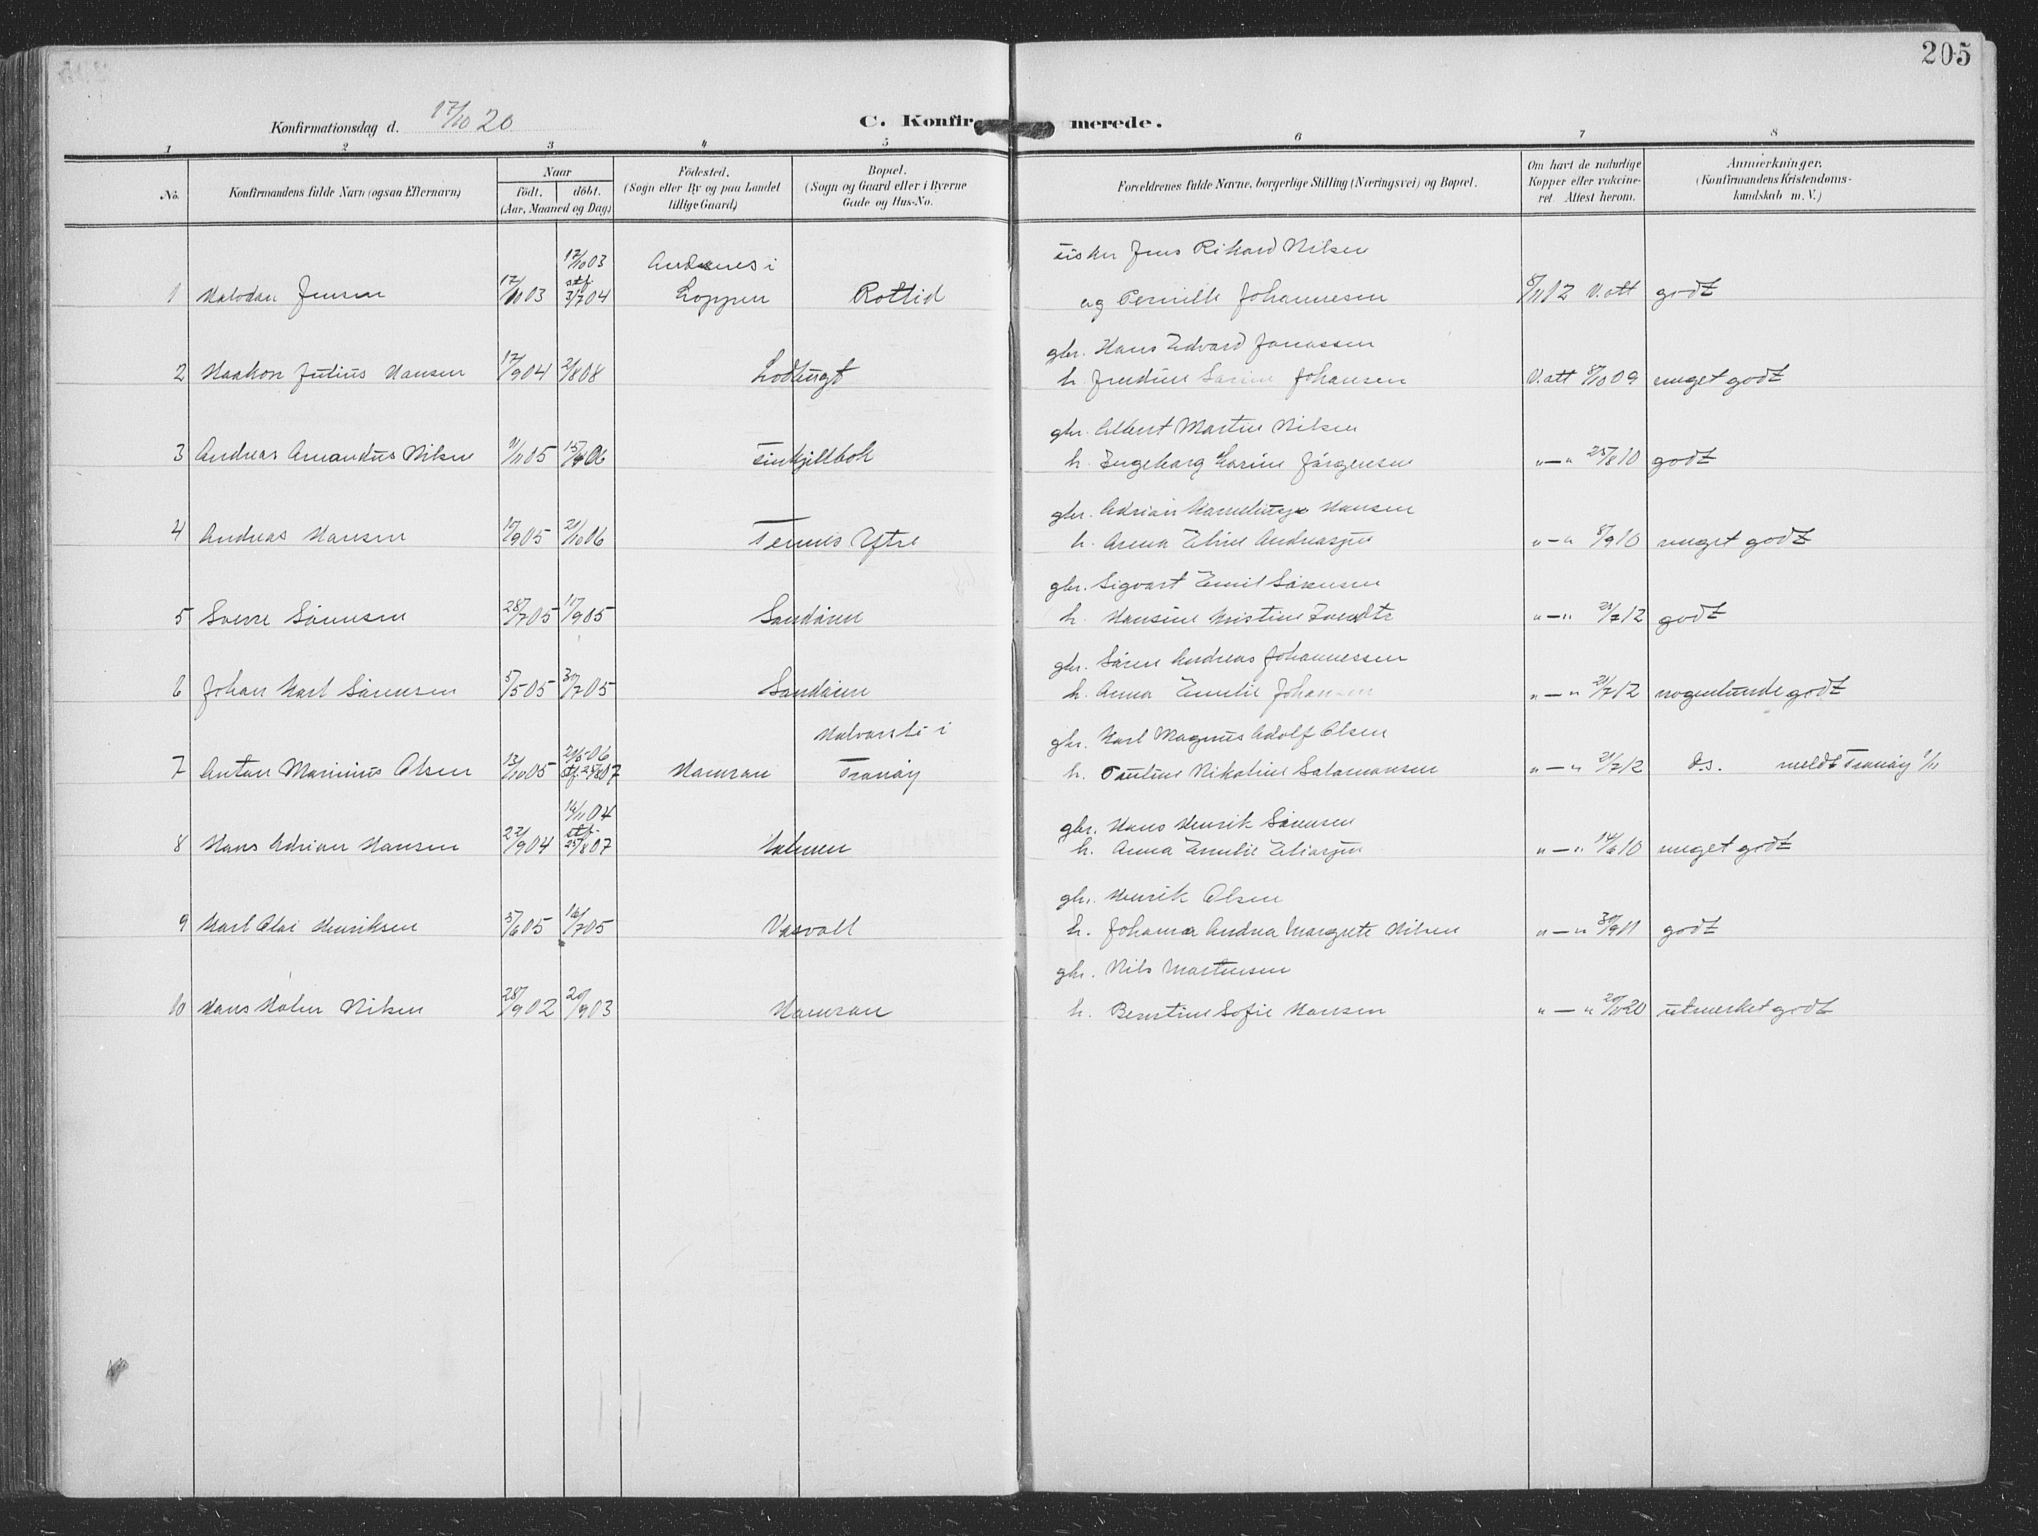 205
Konfirmationsdag d. 17/10 20
C. Konfirmerede.
1 2 3 4 5 6 7 8
No. Konfirmandens fulde Navn (ogsaa Efternavn) Naar födt. döbt. (Aar, Maaned og Dag) Födested. (Sogn eller By og paa Landet tillige Gaard) Bopæl. (Sogn og Gaard eller i Byerne Gade og Hus-No. Forældrenes fulde Navne, borgerlige Stilling (Næringsvei) og Bopæl. Om havt de naturlige Kopper eller vakcineret. Attest herom. Anmerkninger. (Konfirmandens Kristendomskundskab m. V.)
17/10 03 Andsnes i fisker Jens Rikard Nilsen
1 Halvdan Jensen 03 stf. 3/7 04 Loppen Rotlid og Pernille Johannesen 8/11 12 V.att godt
gbr. Hans Edvard Jonassen
2 Haakon Julius Hansen 17/9 04 2/8 08 Lodbugt h. Sarine Johansen V.att 8/10 09 meget godt
gbr. Albert Martin Nilsen
3 Andreas Amandus Nilsen 9/11 05 15/4 06 Finkjellbok h. Ingeborg Larine Jörgensen "—" 25/8 10 godt
gbr. Adrian Hansen
4 Andreas Hansen 9 05 21/10 06 Tennes Ytre h. Arena Eline Andreasen "—" 8/9 10 meget godt
gbr. Sigvart Emil Sörensen
5 Sverre Sörensen 28/7 05 17/9 05 Sandören h. Hansine Kristine "—" 21/7 12 godt
gbr. Sören Andreas Johannessen
6 Johan Karl Sörensen 5/5 05 30/7 05 Sandören h. Anna Emelie Johansen "—" 21/7 12 nogenlunde godt
20/5 06 Halvarsli i gbr. Karl Magnus Adolf Olsen
7 Anton Marinius Olsen 13/10 05 stf. 25/8 07 Hamran Tranöy h. Pauline Nikoline Salamonsen "—" 21/7 12 d.s. meldt Tranöy 1/11
14/11 04 gbr. Hans Henrik Sörensen
8 Hans Adrian Hansen 22/9 04 stf. 25/8 07 Holmen h. Anna Emelie Eliasen "—" 14/6 10 meget godt
gbr. Henrik Olsen
9 Karl Olai Henriksen 5/6 05 16/7 05 Vasvoll h. Johanna Andrea Margrete Nilsen "—" 30/9 11 godt
gbr. Nils Martinsen
10 Hans Holm Nilsen 28/9 02 20/9 03 Hamran h. Berntine Sofie Hansen "—" 20 utmerket godt